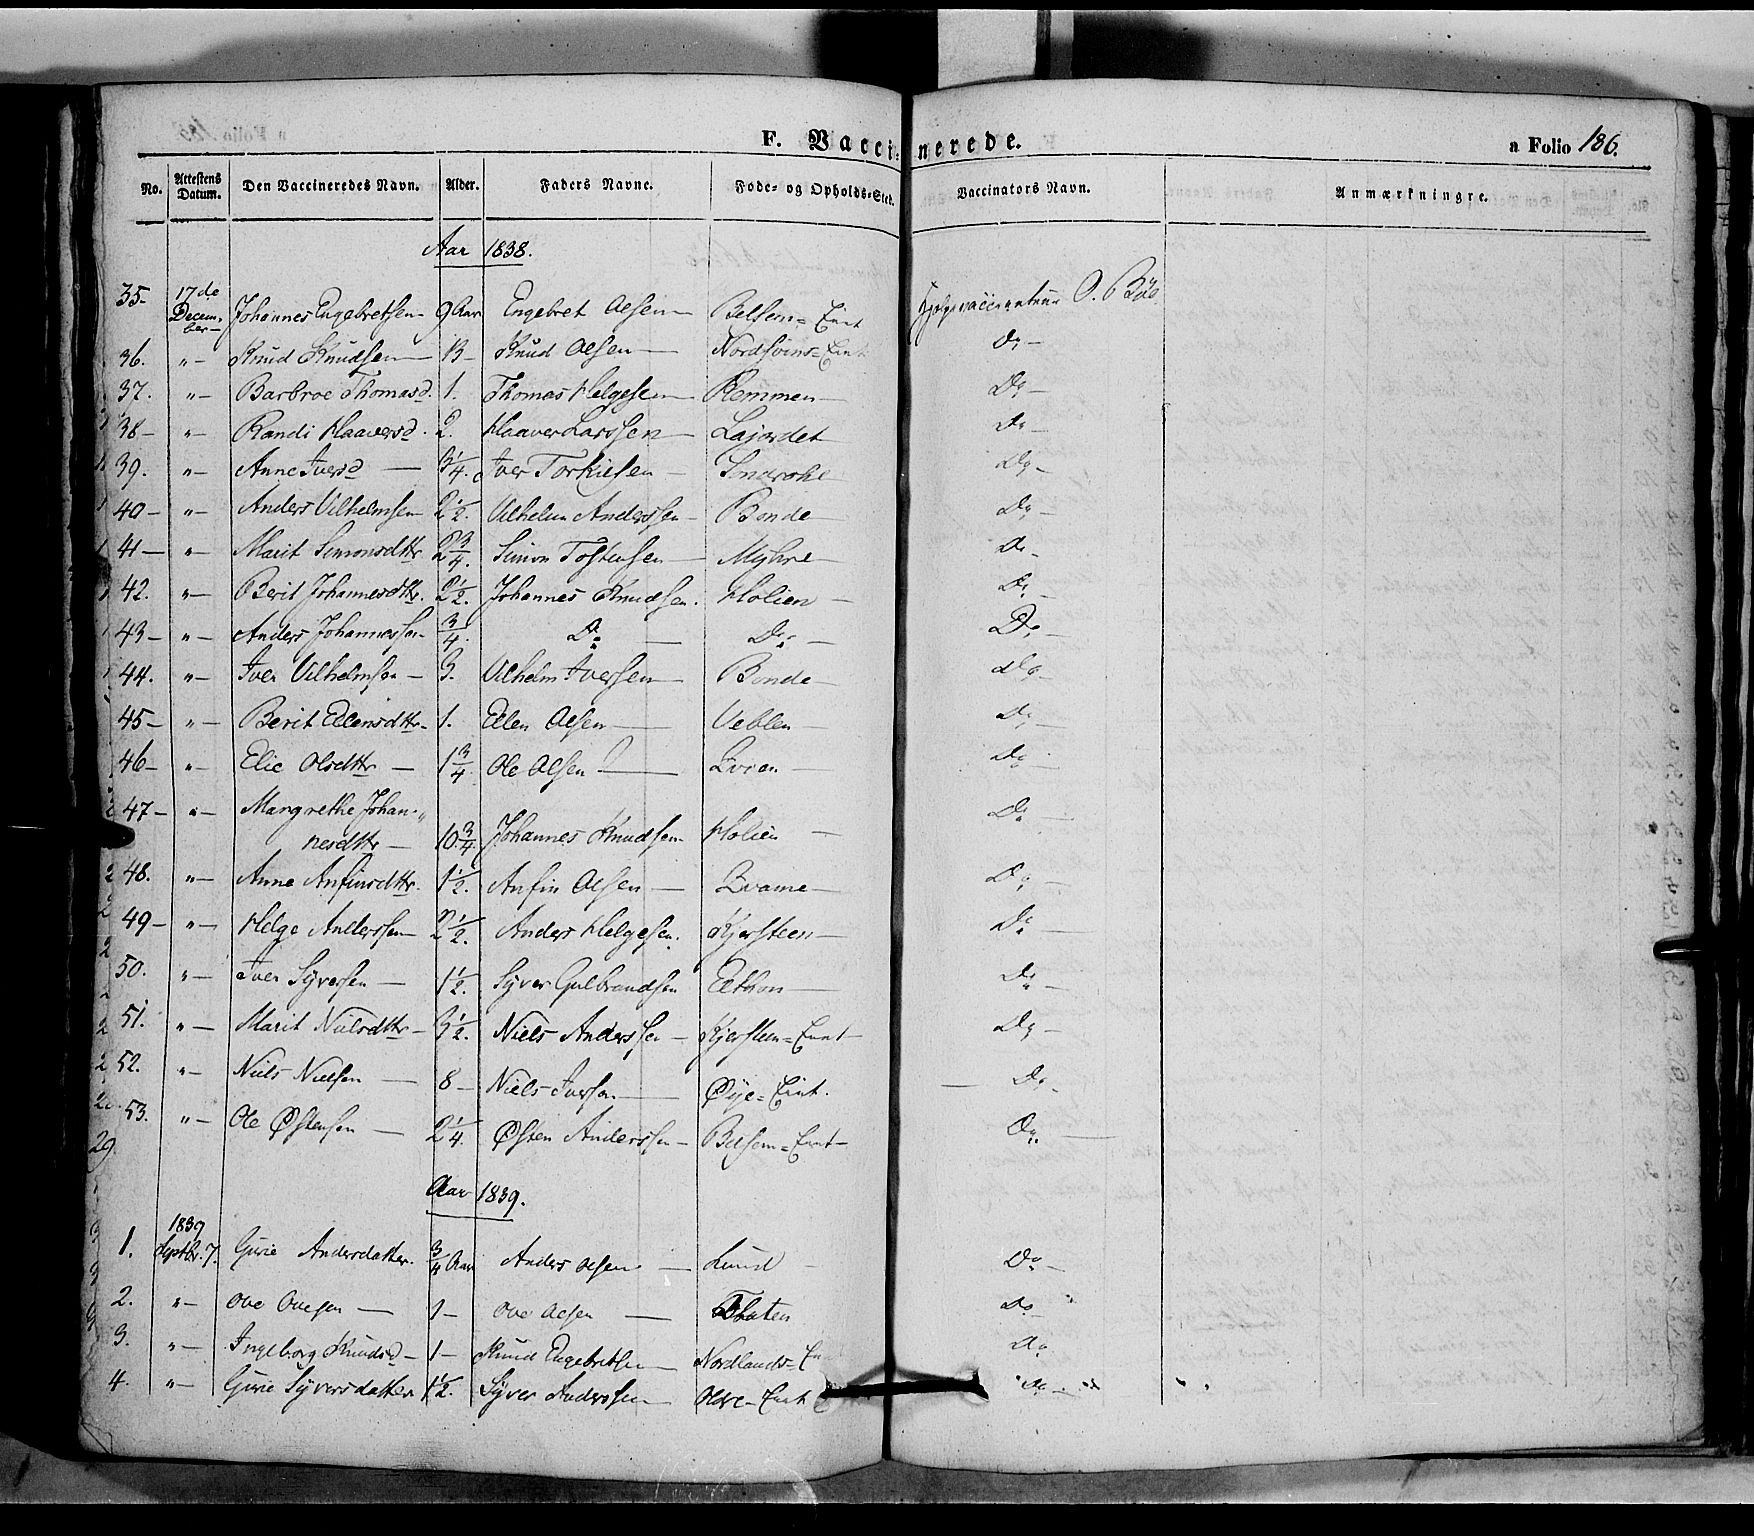 F. Vaccinerede.
a Folio 186.
No. Attestens Datum. Den Vaccineredes Navn. Alder. Faders Navne. Føde- og Opholds-Sted. Vaccinators Navn. Anmærkningre.
Aar 1838.
35- 17de Decem-ber- Johannes Engebretsen- 9 Aar Engebret Olsen- Belsem=Eint Hjelpevaccinateur O. Bøe
36. "- Knud Knudsen- Knud Olsen- Nordsvins=Eint Do-
37. "- Barbroe Thomasd. 1. Thomas Helgesen- Remmen- Do-
38- "- Randi Haaversd. 2. Haaver Larssen- Lajordet Do-
39. "- Anne Iversd- 3¼. Iver Torkilsen- Sondrole Do-
40- "- Anders Vilhelmsen 2½. Vilhelm Anderssen- Bonde- Do-
41- "- Marit Simonsdttr 2¾. Simon Tostensen- Myhre- Do-
42. "- Berit Johannesdttr. 2½. Johannes Knudsen. Holien- Do-
43- "- Anders Johannessen- ¾. Do- Do- Do-
44. "- Iver Vilhelmsen- 3. Vilhelm Iversen- Bonde- do-
45- "- Berit Edlensdttr- 1. Edlen Olsen- Veblen- Do-
46- "- Elie Olsdttr- 1¾ Ole Olsen- Qvien- Do-
47- "- Margrethe Johan-
nesdttr- 10¾ Johannes Knudsen- Holien- Do-
48. "- Anne Anfinsdttr. 1½. Anfin Olsen- Qvame- Do-
49- "- Helge Anderssen- 2½. Anders Helgesen. Kjersteen- Do-
50. "- Iver Syversen- 1½. Syver Gulbrandsen Elthon- Do-
51. "- Marit Nielsdttr- 3½. Niels Anderssen- Kjersteen=Eint- Do-
52. "- Niels Nielsen- 8- Niels Iversen- Øije=Eint. Do-
53. "- Ole Østensen- 2¼ Østen Anderssen- Belsem=Eint- Do-
Aar 1839.
1. 1839 Septbr. 7. Gurie Andersdatter. ¾ Aar Anders Olsen- Lund- Do-
2. "- Ove Ovesen- 1- Ove Olsen- Floten Do-
3. "- Ingeborg Knudsd- 1- Knud Engebretsen- Nordlands= Do
4. "- Gurie Syversdatter 1½. Syver Anderssen- Oldre=Eint Do-